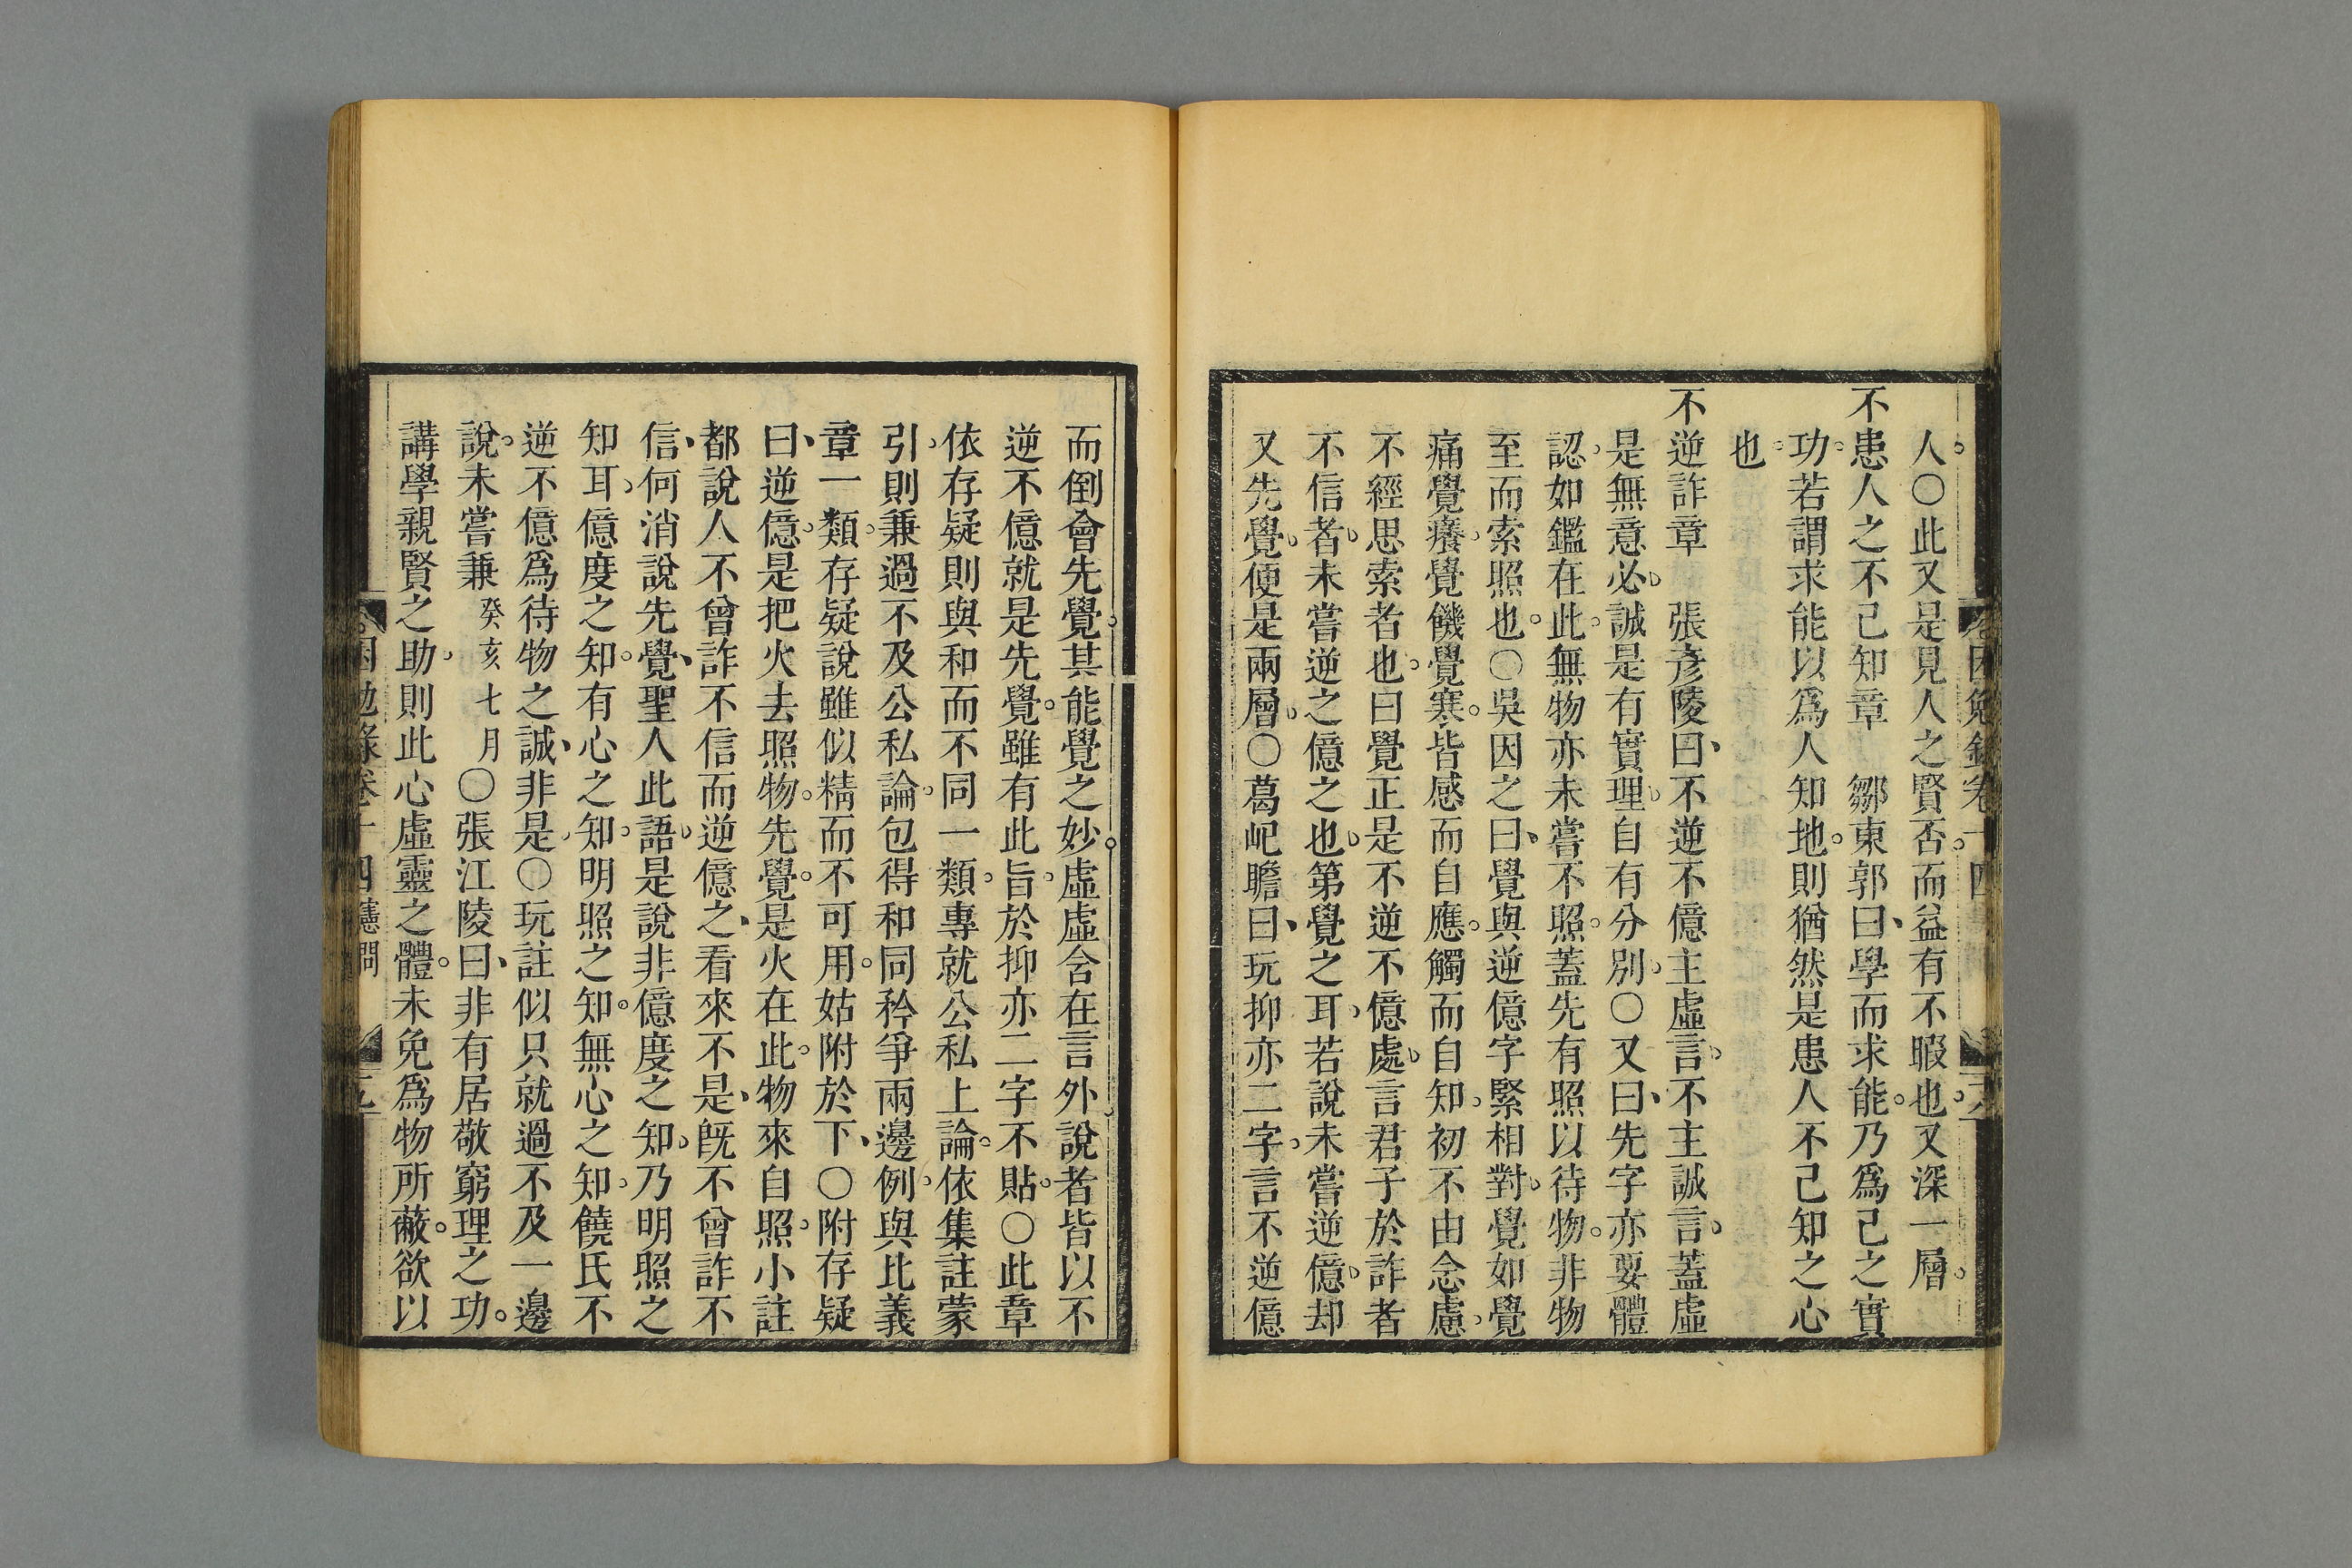 人○此又是見人之賢否而益有不暇也又深一層
不患人之不己知章　鄒東郭曰學而求能乃爲己之實
功若謂求能以爲人知地則猶然是患人不己知之心
也
不逆詐章　張彥陵曰不逆不億主虛言不主誠言蓋虛
是無意必誠是有實理自有分別○又曰先字亦要體
認如鑑在此無物亦未嘗不照蓋先有照以待物非物
至而索照也○吳因之曰覺與逆億字緊相對覺如覺
痛覺癢覺饑覺寒皆感而自應觸而自知初不由念慮
不經思索者也曰覺正是不逆不億處言君子於詐者
不信者未嘗逆之億之也第覺之耳若說未嘗逆億却
又先覺便是兩層○葛屺瞻曰玩抑亦二字言不逆億
而倒會先覺其能覺之妙虛虛含在言外說者皆以不
逆不億就是先覺雖有此旨於抑亦二字不貼○此章
依存疑則與和而不同一類專就公私上論依集註蒙
引則兼過不及公私論包得和同矜爭兩邊例與比義
章一類存疑說雖似精而不可用姑附於下○附存疑
曰逆億是把火去照物先覺是火在此物來自照小註
都說人不曾詐不信而逆億之看來不是旣不曾詐不
信何消說先覺聖人此語是說非億度之知乃明照之
知耳億度之知有心之知明照之知無心之知饒氏不
逆不億爲待物之誠非是○玩註似只就過不及一邊
說未嘗兼癸亥七月○張江陵曰非有居敬窮理之功
講學親賢之助則此心虛靈之體未免爲物所蔽欲以
困勉錄卷十四憲問